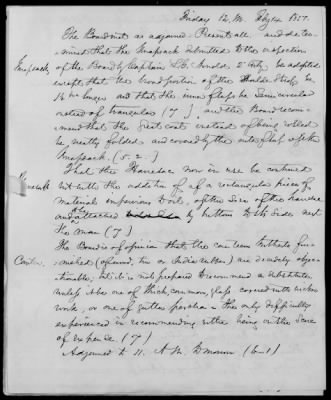 Friday 12 M. Feby 14. 1857.
The Board met as adjourned. Present all and deter-
mined that the Knapsack submitted to the inspection
Knapsack of the Board by Captain L. G. Arnold 2 Arty. be adopted
except that the broad portion of the Shoulder Strap be
1½ in. longer and that the inner flap be Semicircular
instead of triangular (7) and the Board recom-
mend that the great coats instead of being rolled
be neatly folded and covered by the outer flap of the
Knapsack. (5. 2.)
Haversack That the Haversack now in use be continued
but with the addition of a rectangular piece of
material impervious to oil, of the size of the haversack
and attached by buttons to the side next
the man (7)
Canteen The Board is of opinion that the canteens hitherto fur-
nished (of wood, tin or India rubber) are decidedly objec-
tionable; but it is not prepared to recommend a substitute
unless it be one of thick, common, glass covered with wicker
work, or one of gutta percha the only difficulty
experienced in recommending either being on the score
of expense (7)
Adjourned to 11. A M. Tomorrow (6-1)